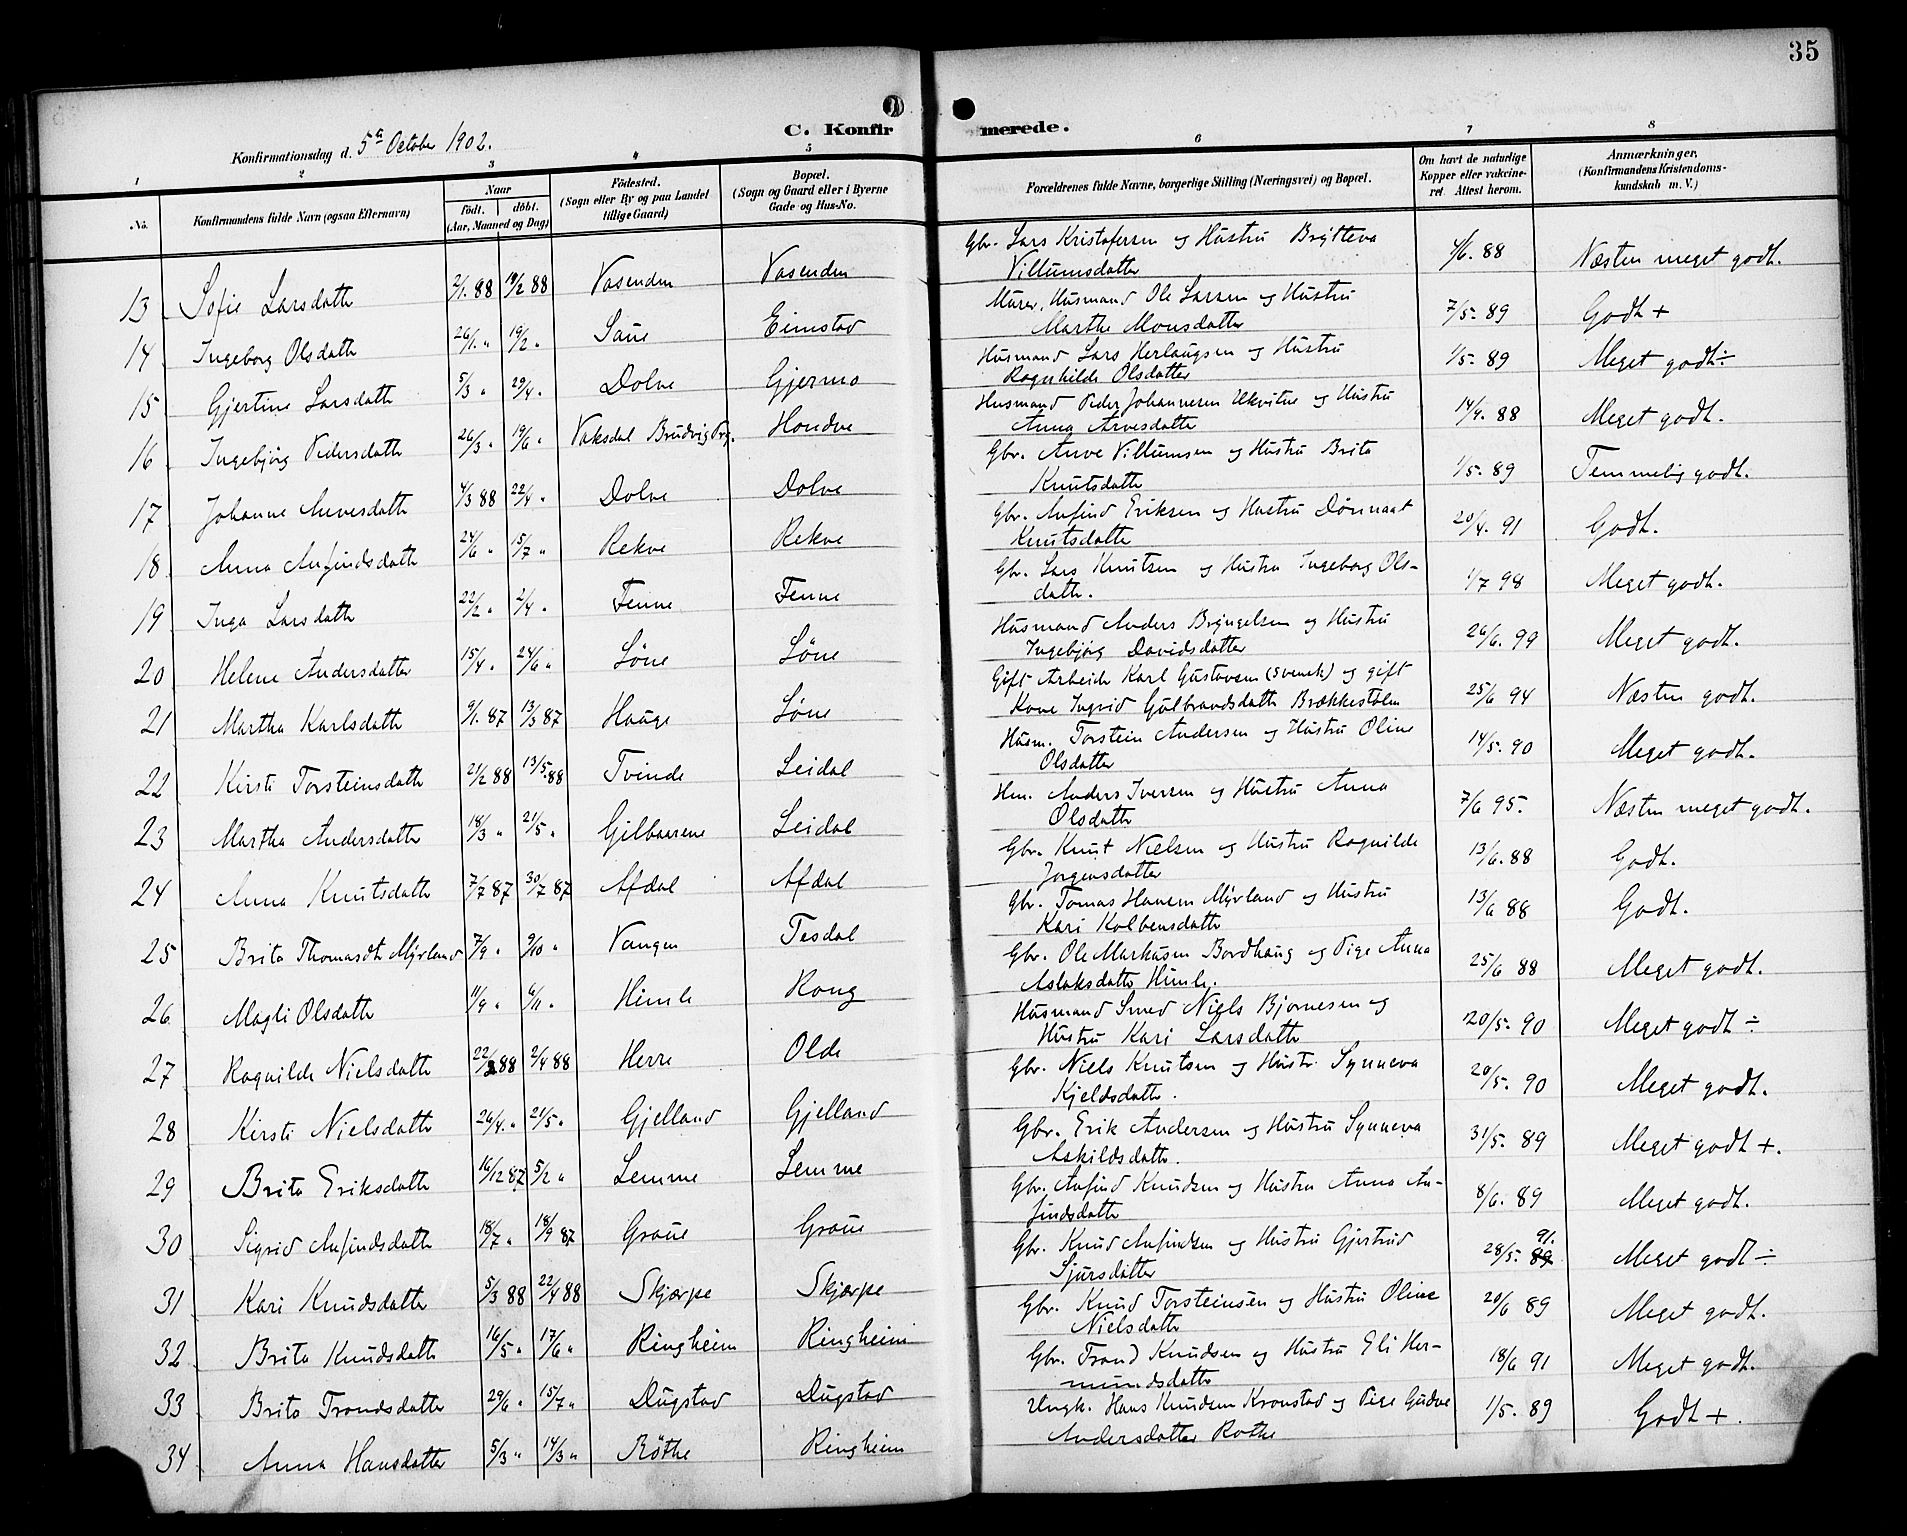 35
C. Konfirmerede.
Konfirmationsdag d. 5te October 1902.
1 2 3 4 5 6 7 8
No. Konfirmandens fulde Navn (ogsaa Efternavn) Naar födt. döbt. (Aar, Maaned og Dag) Födested. (Sogn eller By og paa Landet tillige Gaard) Bopæl. (Sogn og Gaard eller i Byerne Gade og Hus-No. Forældrenes fulde Navne, borgerlige Stilling (Næringsvei) og Bopæl. Om havt de naturlige Kopper eller vakcineret. Attest herom. Anmærkninger. (Konfirmandens Kristendomskundskab m. V.)
13 Sofie Larsdatter 2/1. 88 19/2 88 Vasenden Vasenden Gbr. Lars Kristofersen og Hustru Brytteva
Villumsdatter 4/6. 88 Næsten meget godt.
14 Ingeborg Olsdatter 26/1. " 19/2 " Saue Eimstad Murer, Husmand Ole Larsen og Hustru
Marthe Monsdatter 7/5. 89 Godt +
15 Gjertine Larsdatter 5/3 " 29/4. " Dolve Gjermo Husmand Lars Herlaugsen og Hustru
Ragnhilde Olsdatter 1/5. 89 Meget godt ÷
16 Ingebjørg Pedersdatter 26/3 " 19/6 " Vaksdal Brudvig Prg. Hondve Husmand Peder Johannesen Ukvitne og Hustru
Anna Arvesdatter 14/9. 88 Meget godt.
17 Johanne Arvesdatter 4/3 88 22/4 " Dolve Dolve Gbr. Arve Villumsen og Hustru Brita
Knutsdatter 1/5. 89 Temmelig godt.
18 Anna Anfindsdatter 24/6 " 15/7 " Rekve Rekve Gbr. Anfind Eriksen og Hustru Dønnaat
Knutsdatter 20/4. 91 Godt.
19 Inga Larsdatter 22/2 " 2/4 " Fenne Fenne Gbr. Lars Knutsen og Hustru Ingeborg Ols-
datter. 1/7 98 Meget godt.
20 Helene Andersdatter 15/4 " 24/6 " Löne Löne Husmand Anders Bryngelsen og Hustru
Ingebjørg Davidsdatter 26/6. 99 Meget godt.
21 Martha Karlsdatter 9/1. 87 13/3 87 Hauge Löne Gift Arbeider Karl Gustavsen (svensk) og gift
Kone Ingrid Gulbrandsdatter Brækkestølen 25/6 94 Næsten godt.
22 Kirsti Torsteinsdatter 21/2 88 13/5. 88 Tvinde Leidal Husm. Torstein Andersen og Hustru Oline
Olsdatter 14/5. 90 Meget godt.
23 Martha Andersdatter 18/3 " 21/5 " Gilbaarene Leidal Hm. Anders Iversen og Hustru Anna
Olsdatter 7/6 95. Næsten meget godt.
24 Anna Knutsdatter 7/7 87 30/7 87 Afdal Afdal Gbr. Knut Nielsen og Hustru Ragnilde
Jorgensdatter 13/6. 88 Godt.
25 Brita Thomasdtr Myrland 7/9 " 9/10 " Vangen Tesdal Gbr. Tomas Hansen Myrland og Hustru
Kari Kolbensdatter 13/6 88 Godt.
26 Magli Olsdatter 11/9 " 6/11 " Himle Rong Gbr. Ole Markusen Bordhaug og Pige Anna
Aslaksdatter Himle. 25/6 88 Meget godt.
27 Ragnilde Nielsdatter 22/2 88 2/4 88 Herre Olde Husmand Smed Niels Bjørnesen og
Hustru Kari Larsdatter 20/5. 90 Meget godt ÷
28 Kirsti Nielsdatter 26/4. " 21/5 " Gjelland Gjelland Gbr. Niels Knutsen og Hustr. Synneva
Kjeldsdatter. 20/5. 90 Meget godt.
29 Brita Eriksdatter 16/12 87 5/2 " Lemme Lemme Gbr. Erik Andersen og Hustru Synneva
Askildsdatter. 31/5. 89 Meget godt +.
30 Sigrid Anfindsdatter 18/7 " 18/9 87 Graue Graue Gbr. Anfind Knudsen og Hustru Anna An-
findsdatter 8/6. 89 Meget godt.
31 Kari Knudsdatter 5/3 88 22/4 88 Skjærpe Skjærpe Gbr. Knud Anfindsen og Hustru Gjertrud
Sjursdatter 28/5. 89 91. Meget godt ÷
32 Brita Knudsdatter 16/5 " 17/6 " Ringheim Ringheim Gbr. Knud Torsteinsen og Hustru Oline
Nielsdatter 20/6 89 Meget godt.
33 Brita Trondsdatter 29/6 " 15/7 " Dugstad Dugstad Gbr. Trond Knudsen og Hustru Eli Her-
mundsdatter 18/6 91 Meget godt.
34 Anna Hansdatter 5/3 " 14/3 " Röthe Ringheim Ungk. Hans Knudsen Kronstad og Pige Gudve
Andersdatter Rothe 1/5. 89 Godt +.